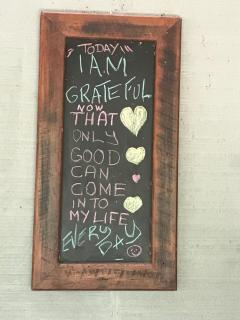 "TODAY"
I AM
GRATEFUL
NOW
THAT
ONLY
GOOD
CAN
COME
IN TO
MY LIFE
EVERY
DAY